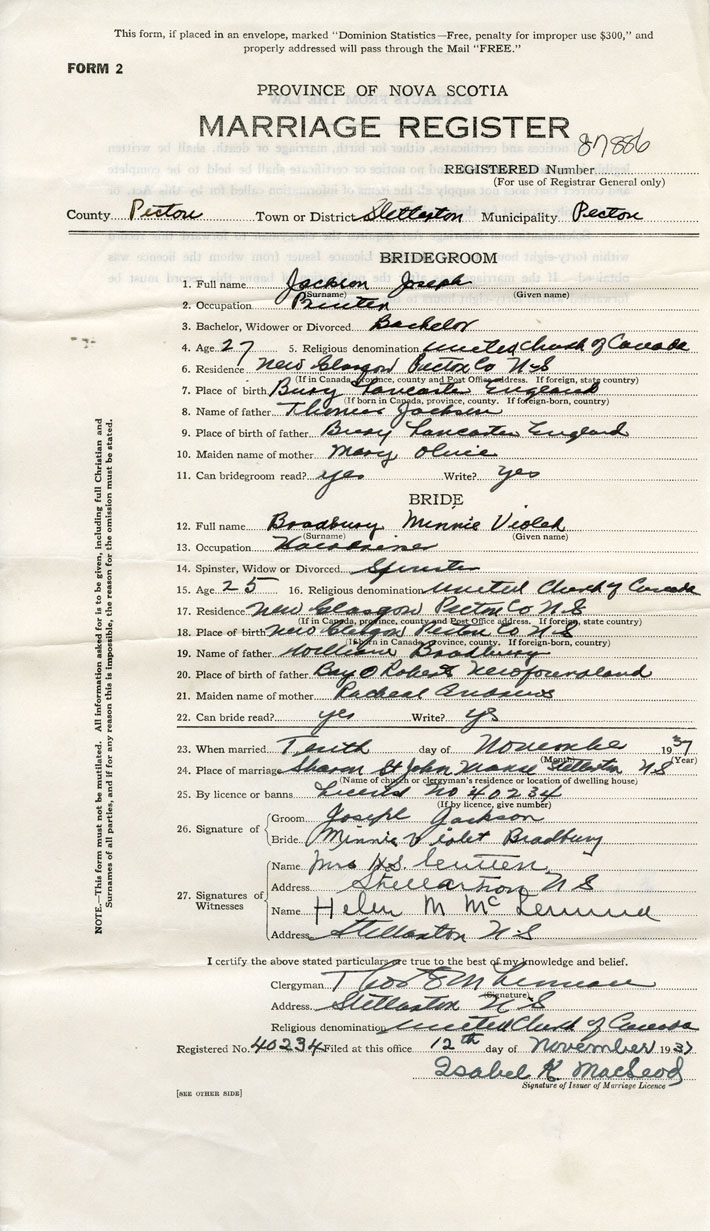 This form, if placed in an envelope, marked "Dominion Statistics—Free, penalty for improper use $300," and
properly addressed will pass through the Mail "FREE."
FORM 2
PROVINCE OF NOVA SCOTIA
MARRIAGE REGISTER
87886
REGISTERED Number
(For use of Registrar General only)
County Pictou Town or District Stellarton Municipality Pictou
BRIDEGROOM
1. Full name Jackson Joseph
(Surname) (Given name)
2. Occupation Printer
3. Bachelor, Widower or Divorced Bachelor
4. Age 27 5. Religious denomination United Church of Canada
6. Residence New Glasgow Pictou Co N.S
(If in Canada, province, county and Post Office address. If foreign, state country)
7. Place of birth Bury Lancaster England
(If born in Canada, province, county. If foreign-born, country)
8. Name of father Thomas Jackson
9. Place of birth of father Bury Lancaster England
10. Maiden name of mother Mary
11. Can bridegroom read? yes Write? yes
BRIDE
12. Full name Bradbury Minnie Violet
(Surname) (Given name)
13. Occupation
14. Spinster, Widow or Divorced Spinster
15. Age 25 16. Religious denomination United Church of Canada
17. Residence New Glasgow Pictou Co N.S
(If in Canada, province, county and Post Office address. If foreign, state country)
18. Place of birth New Glasgow Pictou Co N.S
(If born in Canada, province, county. If foreign-born, country)
19. Name of father William Bradbury
20. Place of birth of father Bay O Roberts Newfoundland
21. Maiden name of mother Racheal Andrews
22. Can bride read? yes Write? yes
23. When married Tenth day of November 1937
(Month) (Year)
24. Place of marriage Sharon St John Manse Stellarton N S
(Name of church or clergyman's residence or location of dwelling house)
25. By licence or banns No 40234
(If by licence, give number)
26. Signature of
Groom Joseph Jackson
Bride Minnie Violet Bradbury
27. Signatures of Witnesses
Name Mrs H.S.
Address Stellarton N S
Name Helen M
Address Stellarton N.S
I certify the above stated particulars are true to the best of my knowledge and belief.
Clergyman
(Signature)
Address Stellarton N.S
Religious denomination United Church of Canada
Registered No. 40234 Filed at this office 12th day of November 1937
Isabel K. MacLeod
Signature of Issuer of Marriage Licence
[SEE OTHER SIDE]
NOTE.—This form must not be mutilated. All information asked for is to be given, including full Christian and
Surnames of all parties, and if for any reason this is impossible, the reason for the omission must be stated.